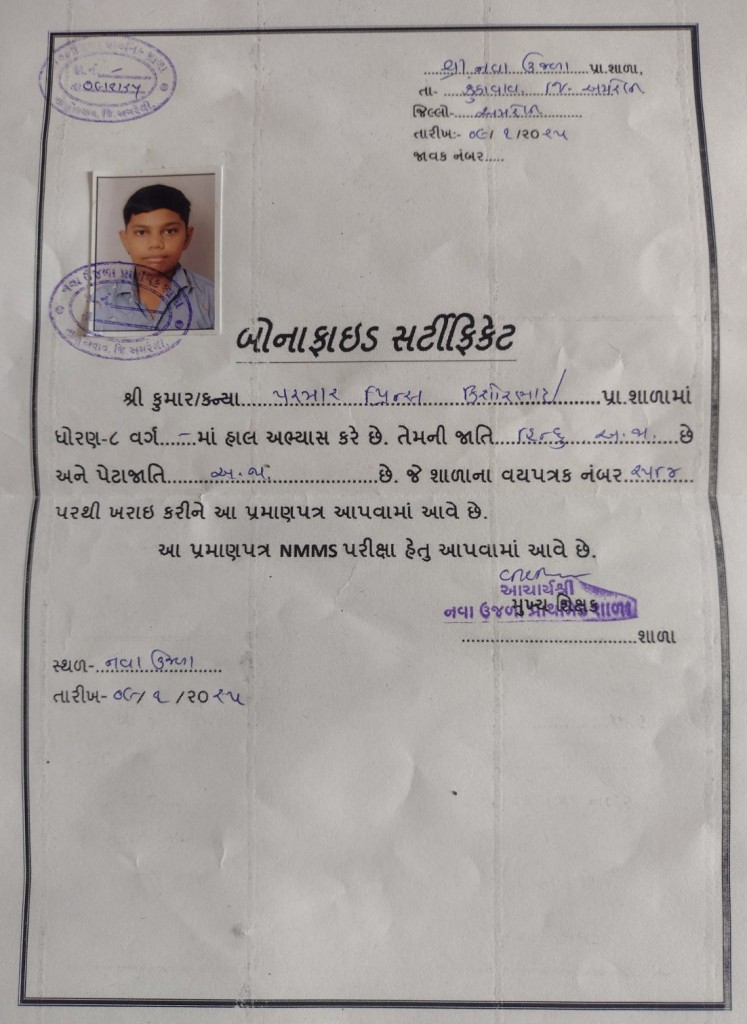 શ્રી નવા ઉજળા પ્રા.શાળા,
તા- કુકાવાવ, જિ- અમરેલી
જિલ્લો- અમરેલી
તારીખ:- ૦૯/ ૧ /૨૦૨૫
જાવક નંબર.....
બોનાફાઇડ સર્ટીફિકેટ
શ્રી કુમાર/કન્યા પરમાર પ્રિન્સ કિશોરભાઇ પ્રા.શાળામાં
ધોરણ-૮ વર્ગ...-...માં હાલ અભ્યાસ કરે છે. તેમની જાતિ હિન્દુ અ.જા. છે
અને પેટાજાતિ અ.જા. છે. જે શાળાના વયપત્રક નંબર ૨૫૮૪
પરથી ખરાઇ કરીને આ પ્રમાણપત્ર આપવામાં આવે છે.
આ પ્રમાણપત્ર NMMS પરીક્ષા હેતુ આપવામાં આવે છે.
આચાર્યશ્રી
મુખ્ય શિક્ષક
નવા ઉજળા પ્રાથમિક શાળા
શાળા
સ્થળ- નવા ઉજળા
તારીખ- ૦૯/ ૧ /૨૦૨૫